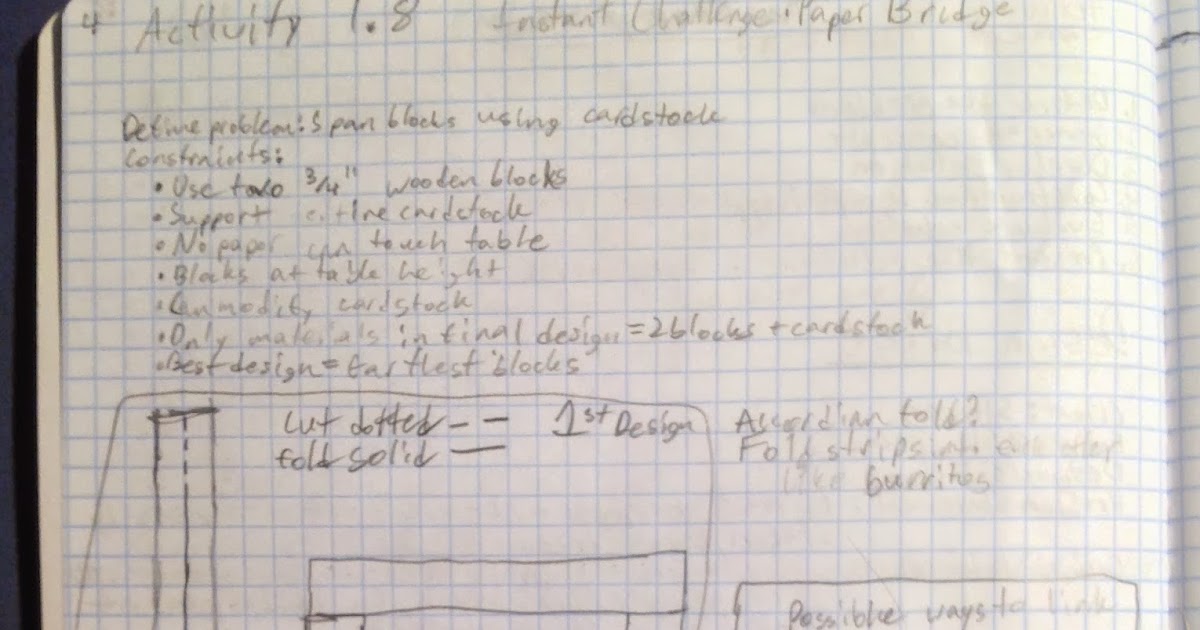 4 Activity 1.8 Instant Challenge: Paper Bridge
Define problem: Span blocks using cardstock
Constraints:
• Use two 3/4" wooden blocks
• Support entire cardstock
• No paper can touch table
• Blocks at table height
• Can modify cardstock
• Only materials in final design = 2 blocks + cardstock
• Best design = farthest blocks
Cut dotted – –
fold solid —
1st Design
Accordian fold?
Fold strips
like burritos
Possible ways to link